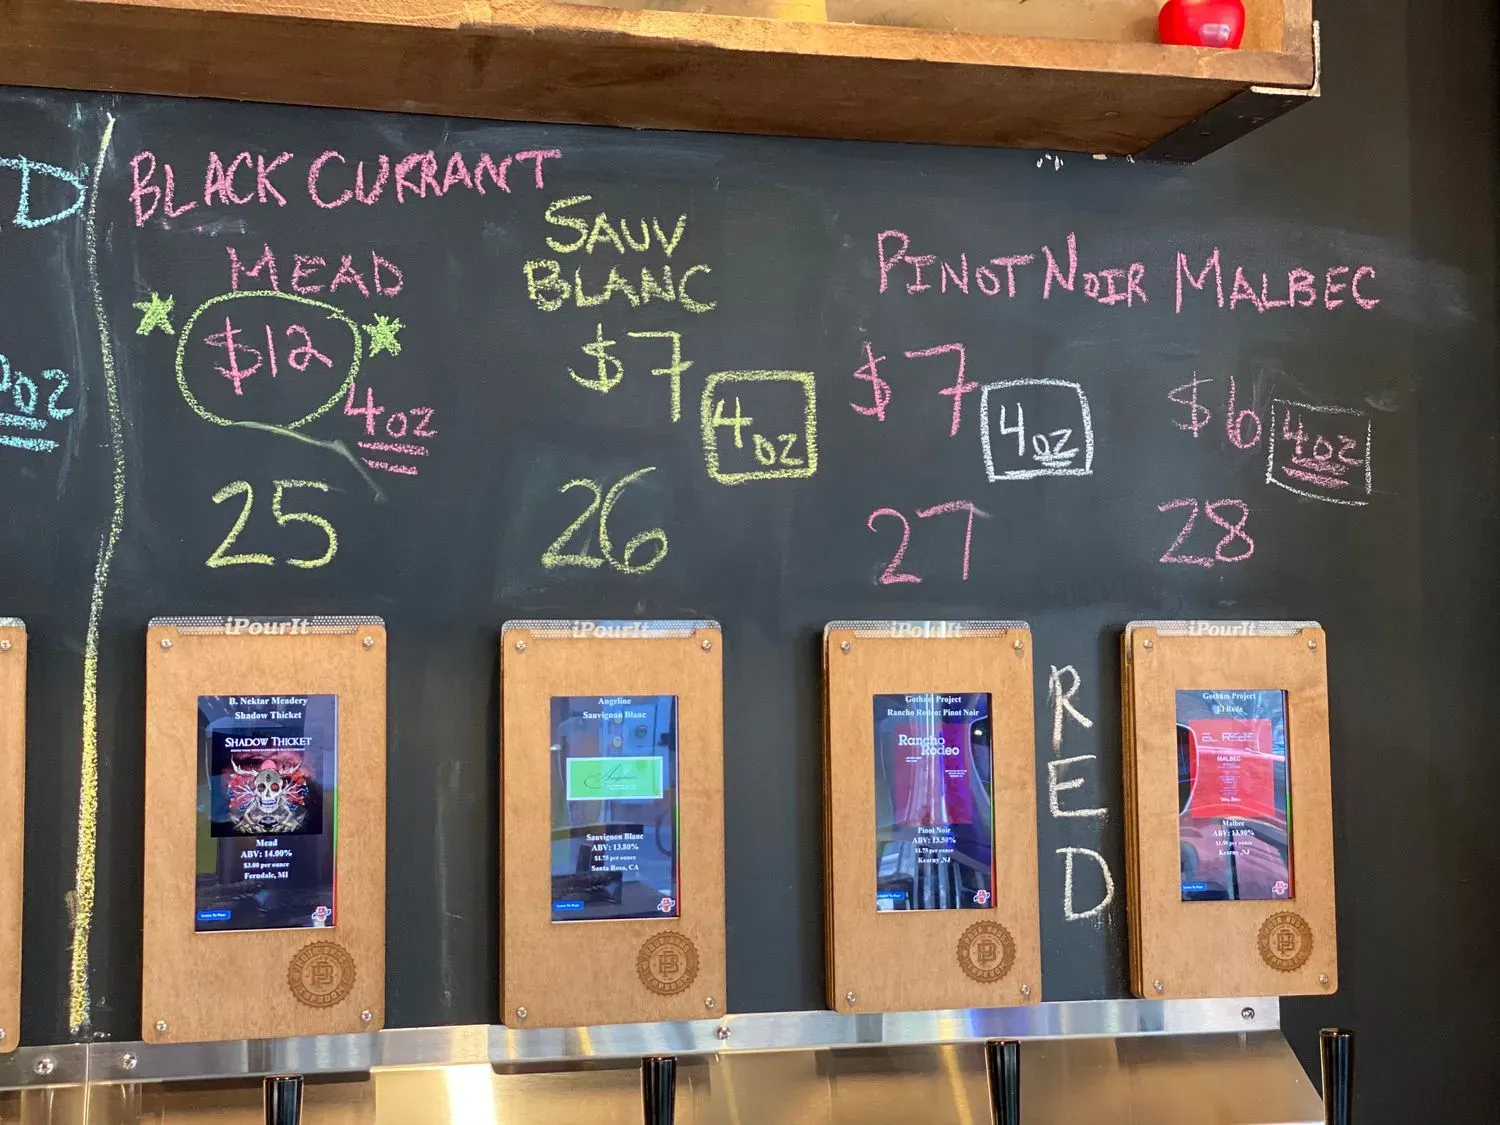 D
BLACK CURRANT
MEAD
$12
4oz
25
SAUV
BLANC
$7
4oz
26
PINOT NOIR
$7
4oz
27
MALBEC
$6
4oz
28
RED
iPourIt
B. Nektar Meadery
Shadow Thicket
SHADOW THICKET
Mead
ABV: 14.00%
$3.00 per ounce
Ferndale, MI
Learn To Pour
iPourIt
Angeline
Sauvignon Blanc
Angeline
Sauvignon Blanc
ABV: 13.80%
$1.75 per ounce
Santa Rosa, CA
Learn To Pour
iPourIt
Gotham Project
Rancho Rodeo: Pinot Noir
Rancho
Rodeo
Pinot Noir
ABV: 13.50%
$1.75 per ounce
Kearny, NJ
Learn To Pour
iPourIt
Gotham Project
El Rede
MALBEC
Malbec
ABV: 13.90%
$1.50 per ounce
Kearny, NJ